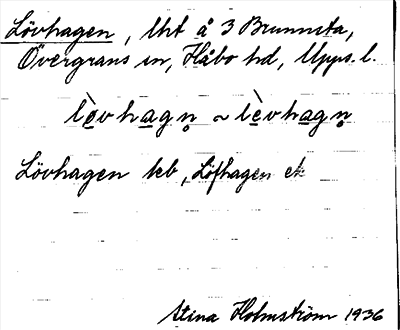 Lövhagen, lht å 3 Brunnsta,
Övergrans sn, Håbo hd, Upps. l.
lè̠vha̠gn̥ ~ lèvha̠gn̥
Lövhagen kb, Löfhagen ek
Stina Holmström 1936